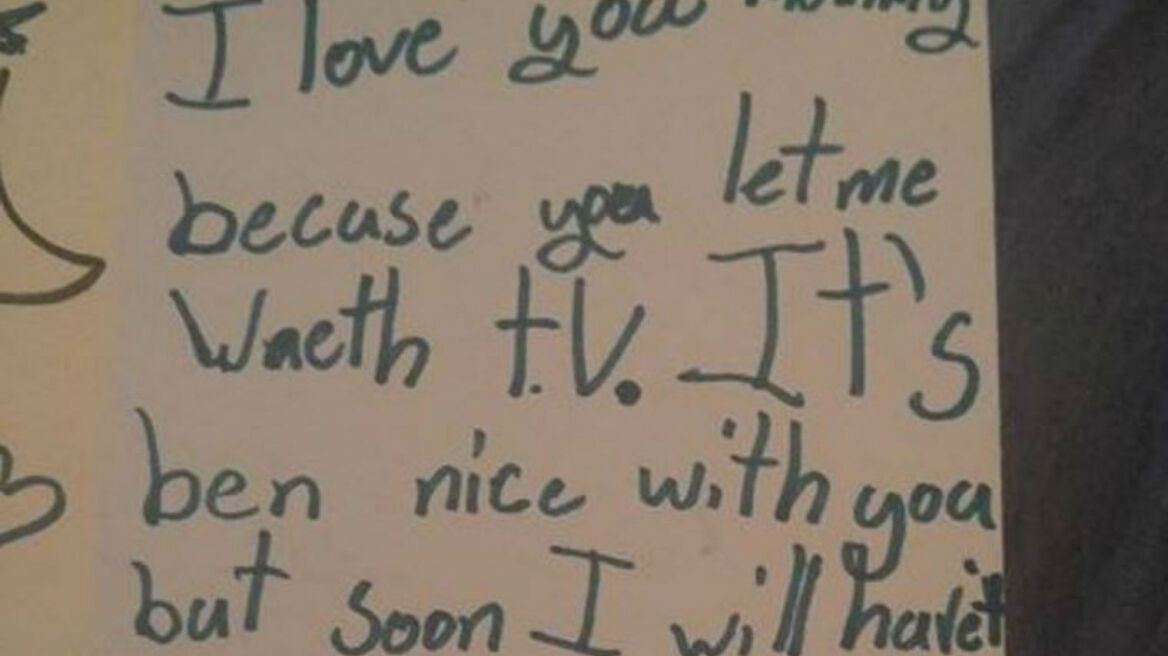 I love you mommy
becuse you let me
Wacth t.V. It's
ben nice with you
but soon I will